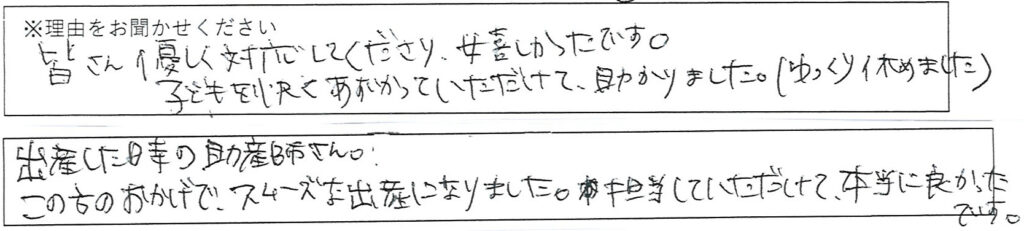 ※理由をお聞かせください
皆さん優しく対応してくださり、嬉しかったです。
子どもを快くあずかっていただけて、助かりました。(ゆっくり休めました)
出産した時の助産師さん。
この方のおかげで、スムーズな出産になりました。担当していただけて、本当に良かった
です。